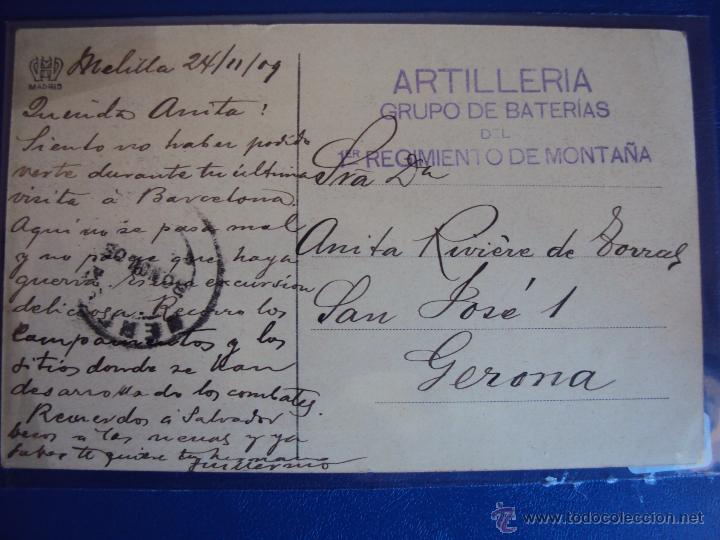 MADRID
Melilla 24/11/09
Querida Anita!
Siento no haber podido
verte durante tu ultima
visita á Barcelona.
Aqui no se pasa mal
y no parece que haya
guerra. Es una excursion
deliciosa. Recorro los
campamentos y los
sitios donde se han
desarrollado los combates.
Recuerdos á Salvador
besos a las nenas y ya
sabes te quiere tu hermano
Guillermo
ARTILLERIA
GRUPO DE BATERÍAS
DEL
1ER REGIMIENTO DE MONTAÑA
Sra Da
Anita Rivière de Torras
San José 1
Gerona
© todocoleccion.net
www.todocoleccion.net